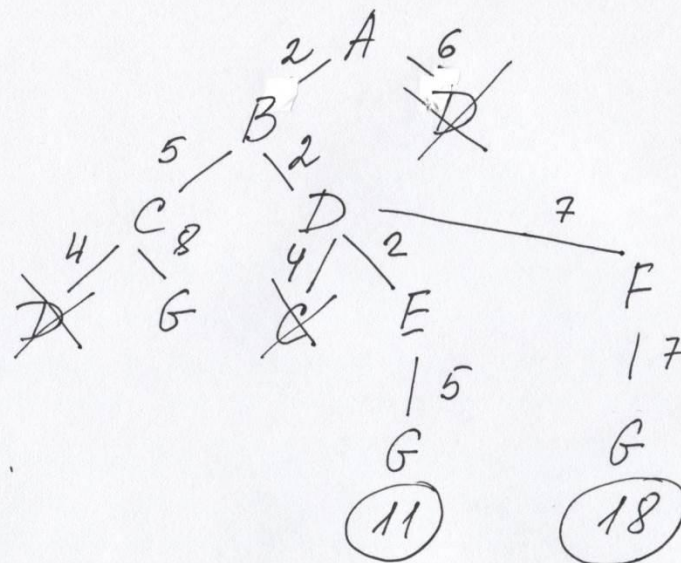 2 A 6
B D
5 2
C D 7
4 8 4 2
D G C E F
5 7
G G
11 18